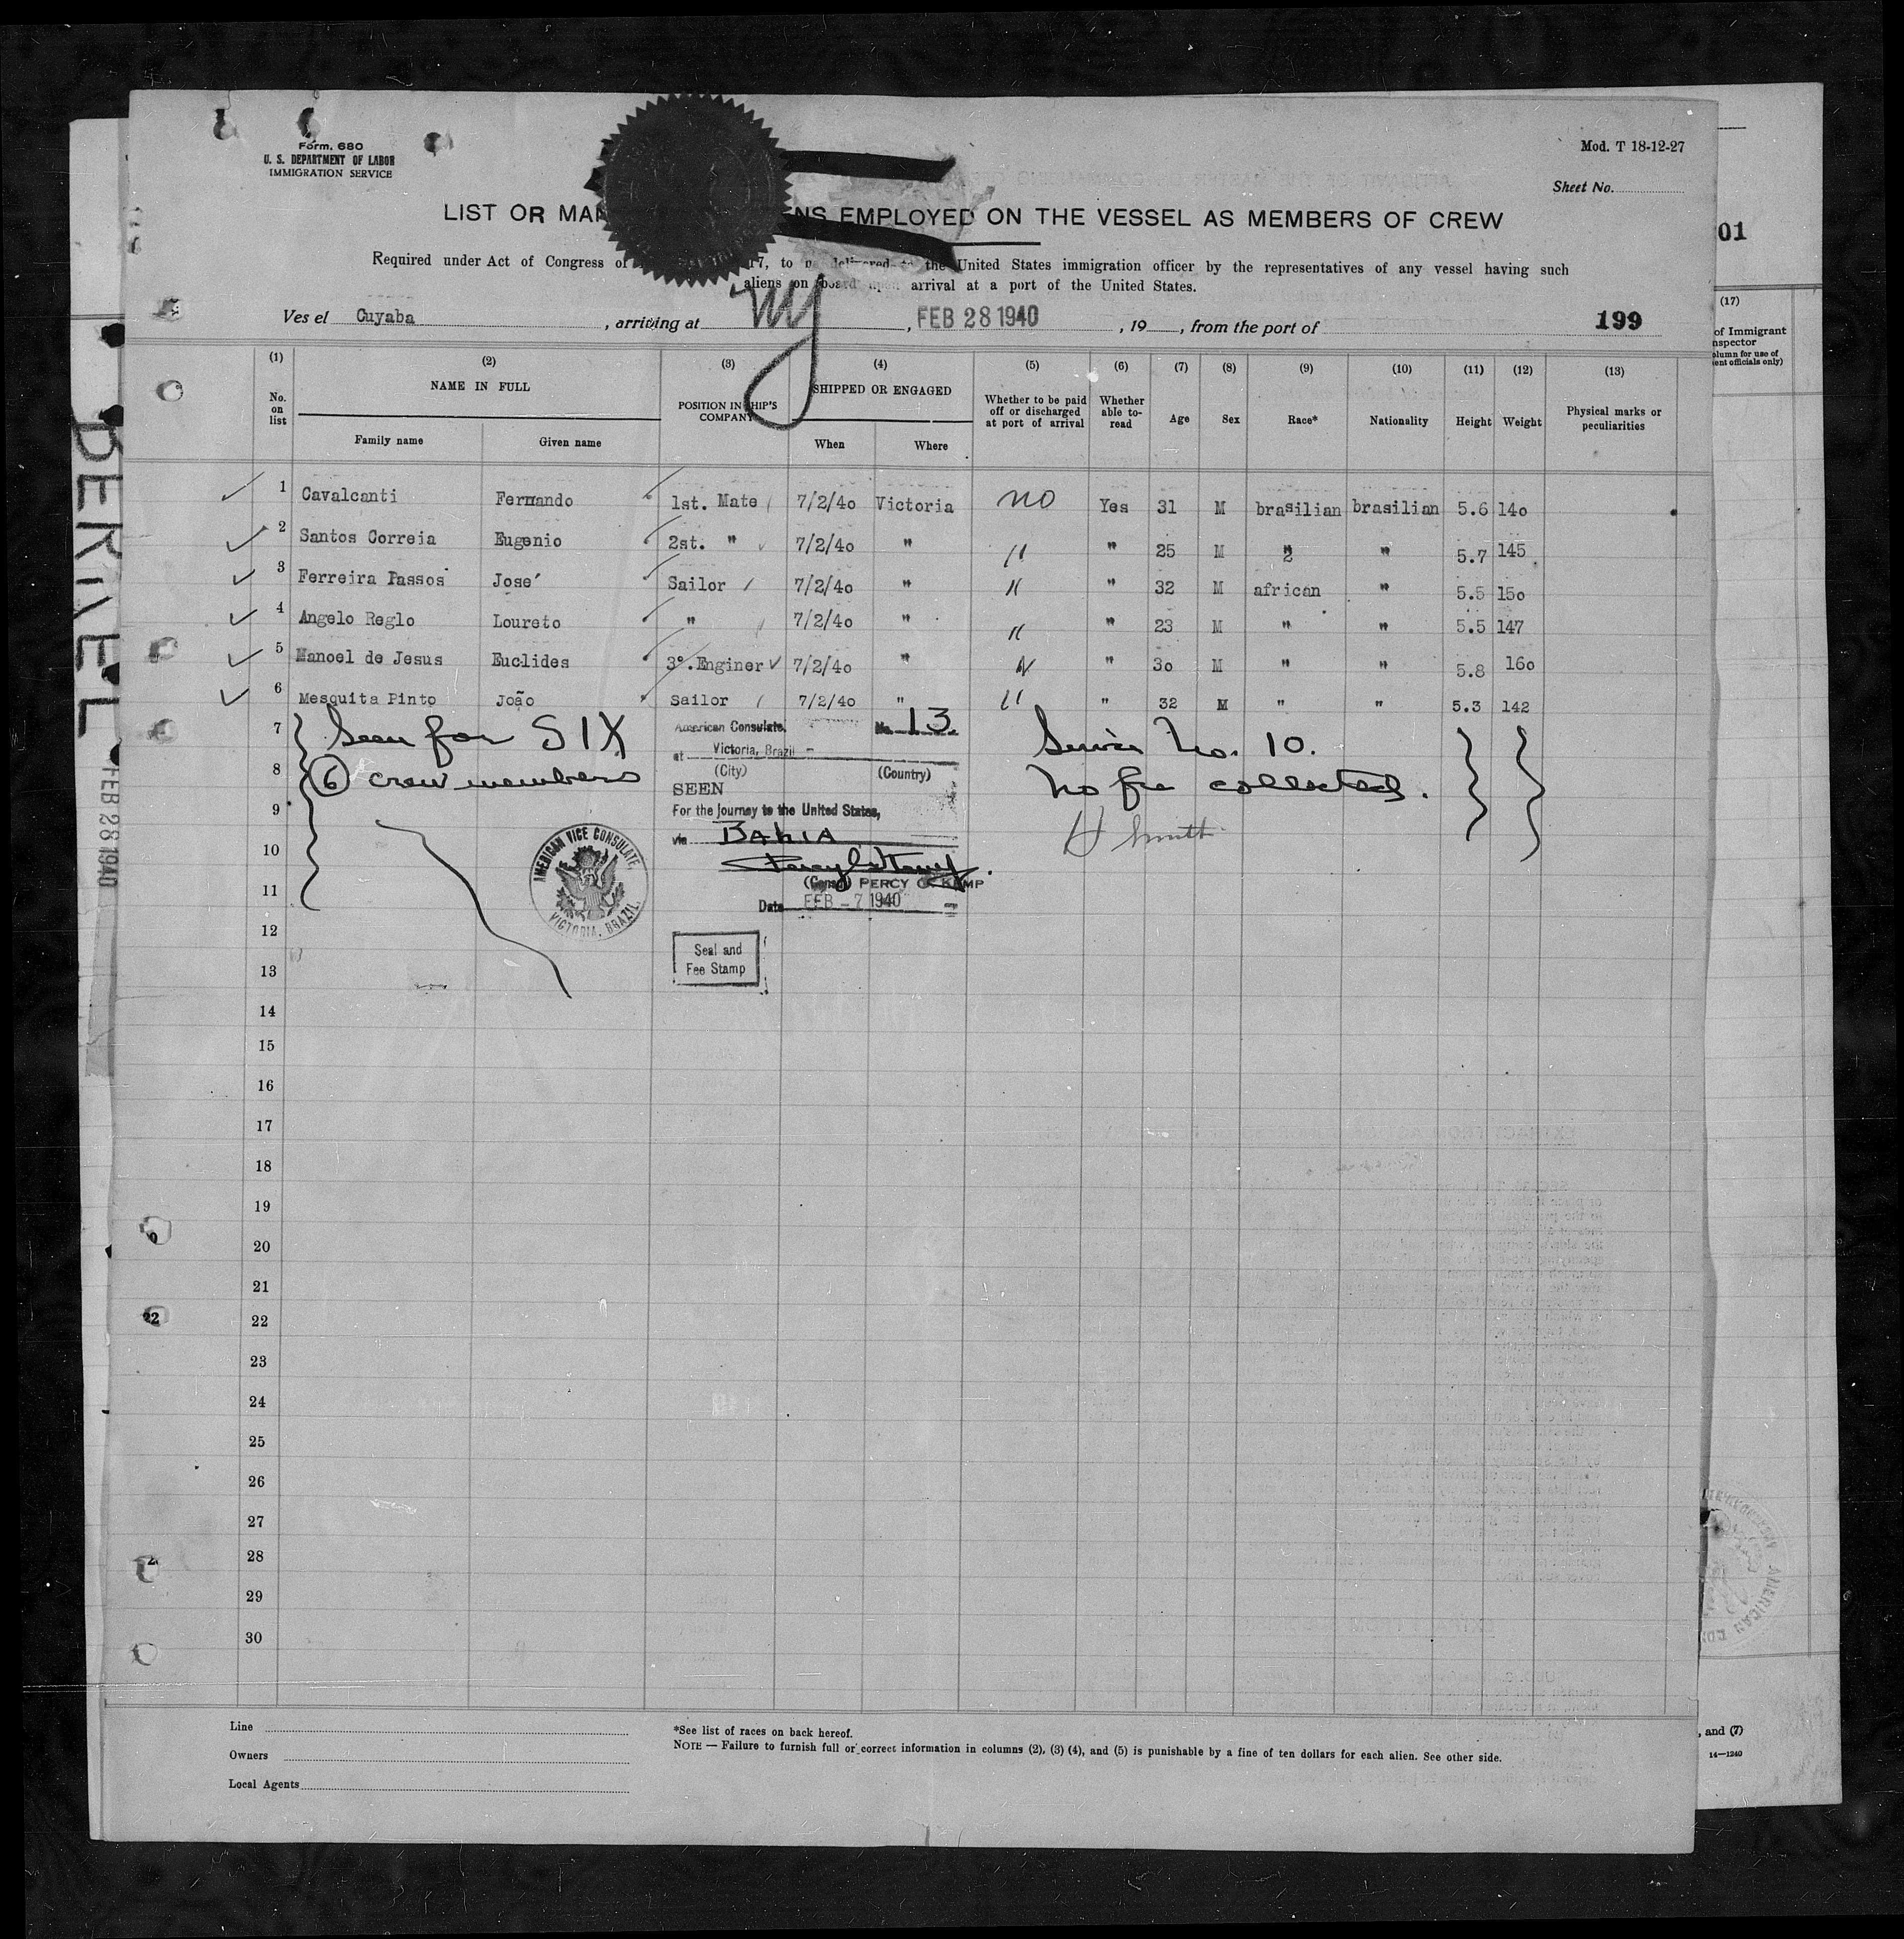 Form. 680
U. S. DEPARTMENT OF LABOR
IMMIGRATION SERVICE
Mod. T 18-12-27
Sheet No.
LIST OR MAN NS EMPLOYED ON THE VESSEL AS MEMBERS OF CREW
Required under Act of Congress of 17, to be delivered to the United States immigration officer by the representatives of any vessel having such
aliens on board upon arrival at a port of the United States.
Ves el Cuyaba , arriving at NY , FEB 28 1940 , 19 , from the port of 199
(1) (2) (3) (4) (5) (6) (7) (8) (9) (10) (11) (12) (13)
No. on list NAME IN FULL Family name Given name POSITION IN SHIP'S COMPANY SHIPPED OR ENGAGED When Where Whether to be paid off or discharged at port of arrival Whether able to- read Age Sex Race* Nationality Height Weight Physical marks or peculiarities
1 Cavalcanti Fernando 1st. Mate 7/2/40 Victoria no Yes 31 M brasilian brasilian 5.6 140
2 Santos Correia Eugenio 2st. " 7/2/40 " " " 25 M " " 5.7 145
3 Ferreira Passos José Sailor 7/2/40 " " " 32 M african " 5.5 150
4 Angelo Reglo Loureto " 7/2/40 " " " 23 M " " 5.5 147
5 Manoel de Jesus Euclides 3º.Enginer 7/2/40 " " " 30 M " " 5.8 160
6 Mesquita Pinto João Sailor 7/2/40 " " " 32 M " " 5.3 142
7 Seen for SIX
8 (6) crew members
9
10
11
AMERICAN VICE CONSULATE
VICTORIA, BRAZIL.
American Consulate, No. 13
at Victoria, Brazil -
(City) (Country)
SEEN
For the journey to the United States,
via BAHIA
(Consul) PERCY G. KEMP
Date FEB - 7 1940
Seal and
Fee Stamp
Service No. 10.
No fee collected.
12
13
14
15
16
17
18
19
20
21
22
23
24
25
26
27
28
29
30
Line
Owners
Local Agents
*See list of races on back hereof.
NOTE — Failure to furnish full or correct information in columns (2), (3) (4), and (5) is punishable by a fine of ten dollars for each alien. See other side.
FEB 28 1940
22
01
(17)
of Immigrant
nspector
olumn for use of
ent officials only)
, and (7)
14—1240